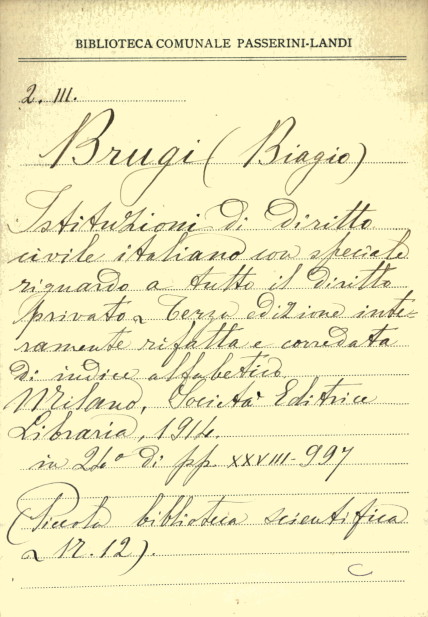 BIBLIOTECA COMUNALE PASSERINI-LANDI
2. III.
Brugi (Biagio)
Istituzioni di diritto
civile italiano con speciale
riguardo a tutto il diritto
privato ~ Terza edizione inte-
ramente rifatta e corredata
di indice alfabetico
Milano, Società Editrice
Libraria, 1914.
in 24° di pp. XXVIII-997
(Piccola biblioteca scientifica
~ Nr. 12).